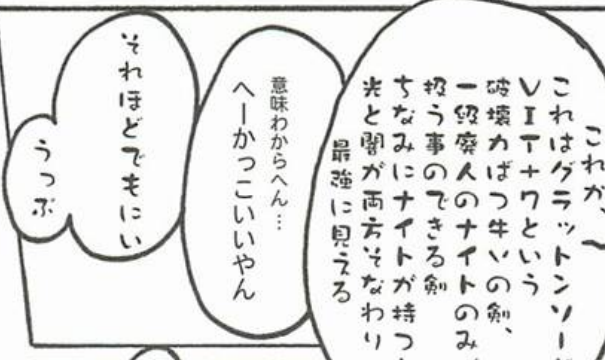 これが、〜
これはグラットンソー
VIT+7という
破壊力ばつ牛ンの剣、
一級廃人のナイトのみ
扱う事のできる剣
ちなみにナイトが持つ
光と闇が両方そなわり
最強に見える
意味わからへん…
へーかっこいいやん
それほどでもにい
うっぷ